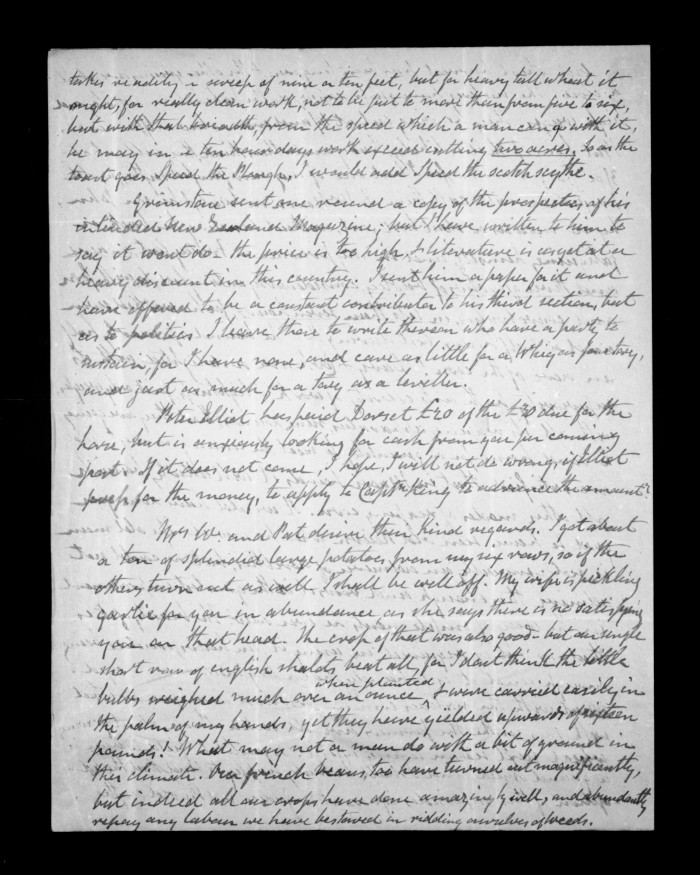 takes readily a sweep of nine or ten feet, but for heavy tall wheat it
ought, for really clean work, not to be put to more than from five to six,
but with that breadth, from the speed which a man can go with it,
he may in a ten hours days work exceed cutting two acres. So as the
toast goes Speed the Plough, I would add Speed the scotch scythe.
Grimstone sent one round a copy of the prospectus of his
intended New Zealand Magazine; but I have written to him to
say it wont do - the price is too high, & literature is as yet at a
heavy discount in this country. I sent him a paper for it and
have offered to be a constant contributor to his third section, but
as to politics I leave those to write thereon who have a party to
sustain, for I have none, and care as little for a Whig as for a tory,
and just as much for a tory as a leveller.
Peter Elliot has paid Dorset £20 of the £30 due for the
horse, but is anxiously looking for cash from you per coming
post. If it does not come, I hope, I will not do wrong, if Elliot
for the money, to apply to Captn King to advance the amount.
Mrs W. and Pat desire their kind regards. I got about
a ton of splendid large potatoes from my six rows, so if the
others turn out as well I shall be well off. My wife is pickling
garlic for you in abundance as she says there is no satisfying
you on that head. The crop of that was also good - but our single
short row of english shalots beat all, for I dont think the little
bulbs weighed much over an ounce when planted, & were carried easily in
the palm of my hands, yet they have yielded upwards of sixteen
pounds! What may not a man do with a bit of ground in
this climate. Our french beans, too have turned out magnificently,
but indeed all our crops have done amazingly well, and abundantly
repay any labour we have bestowed in ridding ourselves of weeds.